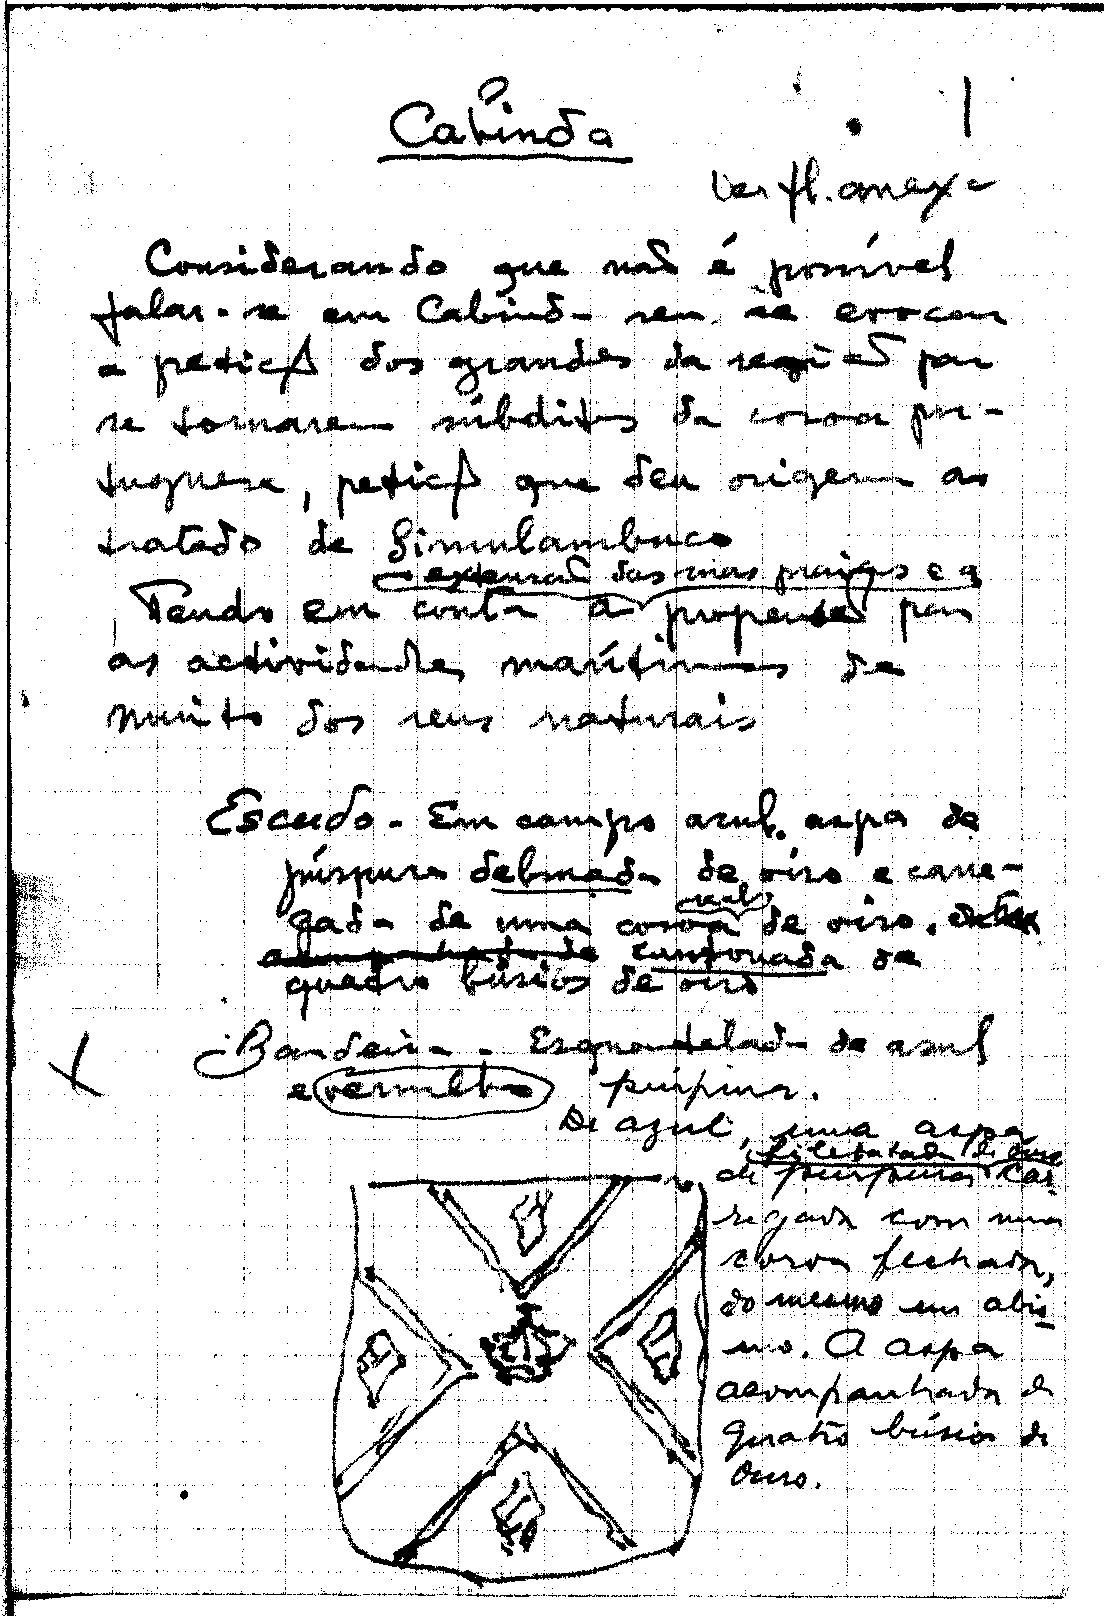 Cabinda
1
Ver fl. anexa
Considerando que não é possível
falar-se em Cabinda sem se evocar
a petição dos grandes da região por
se tornarem súbditos da coroa por-
tuguesa, petição que deu origem ao
tratado de Simulambuco
extensão das suas praias e a
Tendo em conta a propensão para
as actividades marítimas de
muito dos seus naturais
Escudo - Em campo azul, aspa de
púrpura debruada de oiro e carre-
gada de uma coroa real de oiro.
acompanhada de cantonada de
quatro búsios de oiro
Bandeira - Esquartelada de azul
e vermelho púrpura.
De azul, uma aspa
filetada de ouro
de púrpura car-
regada com uma
coroa fechada,
do mesmo em abis-
mo. A aspa
acompanhada de
quatro búsios de
ouro.